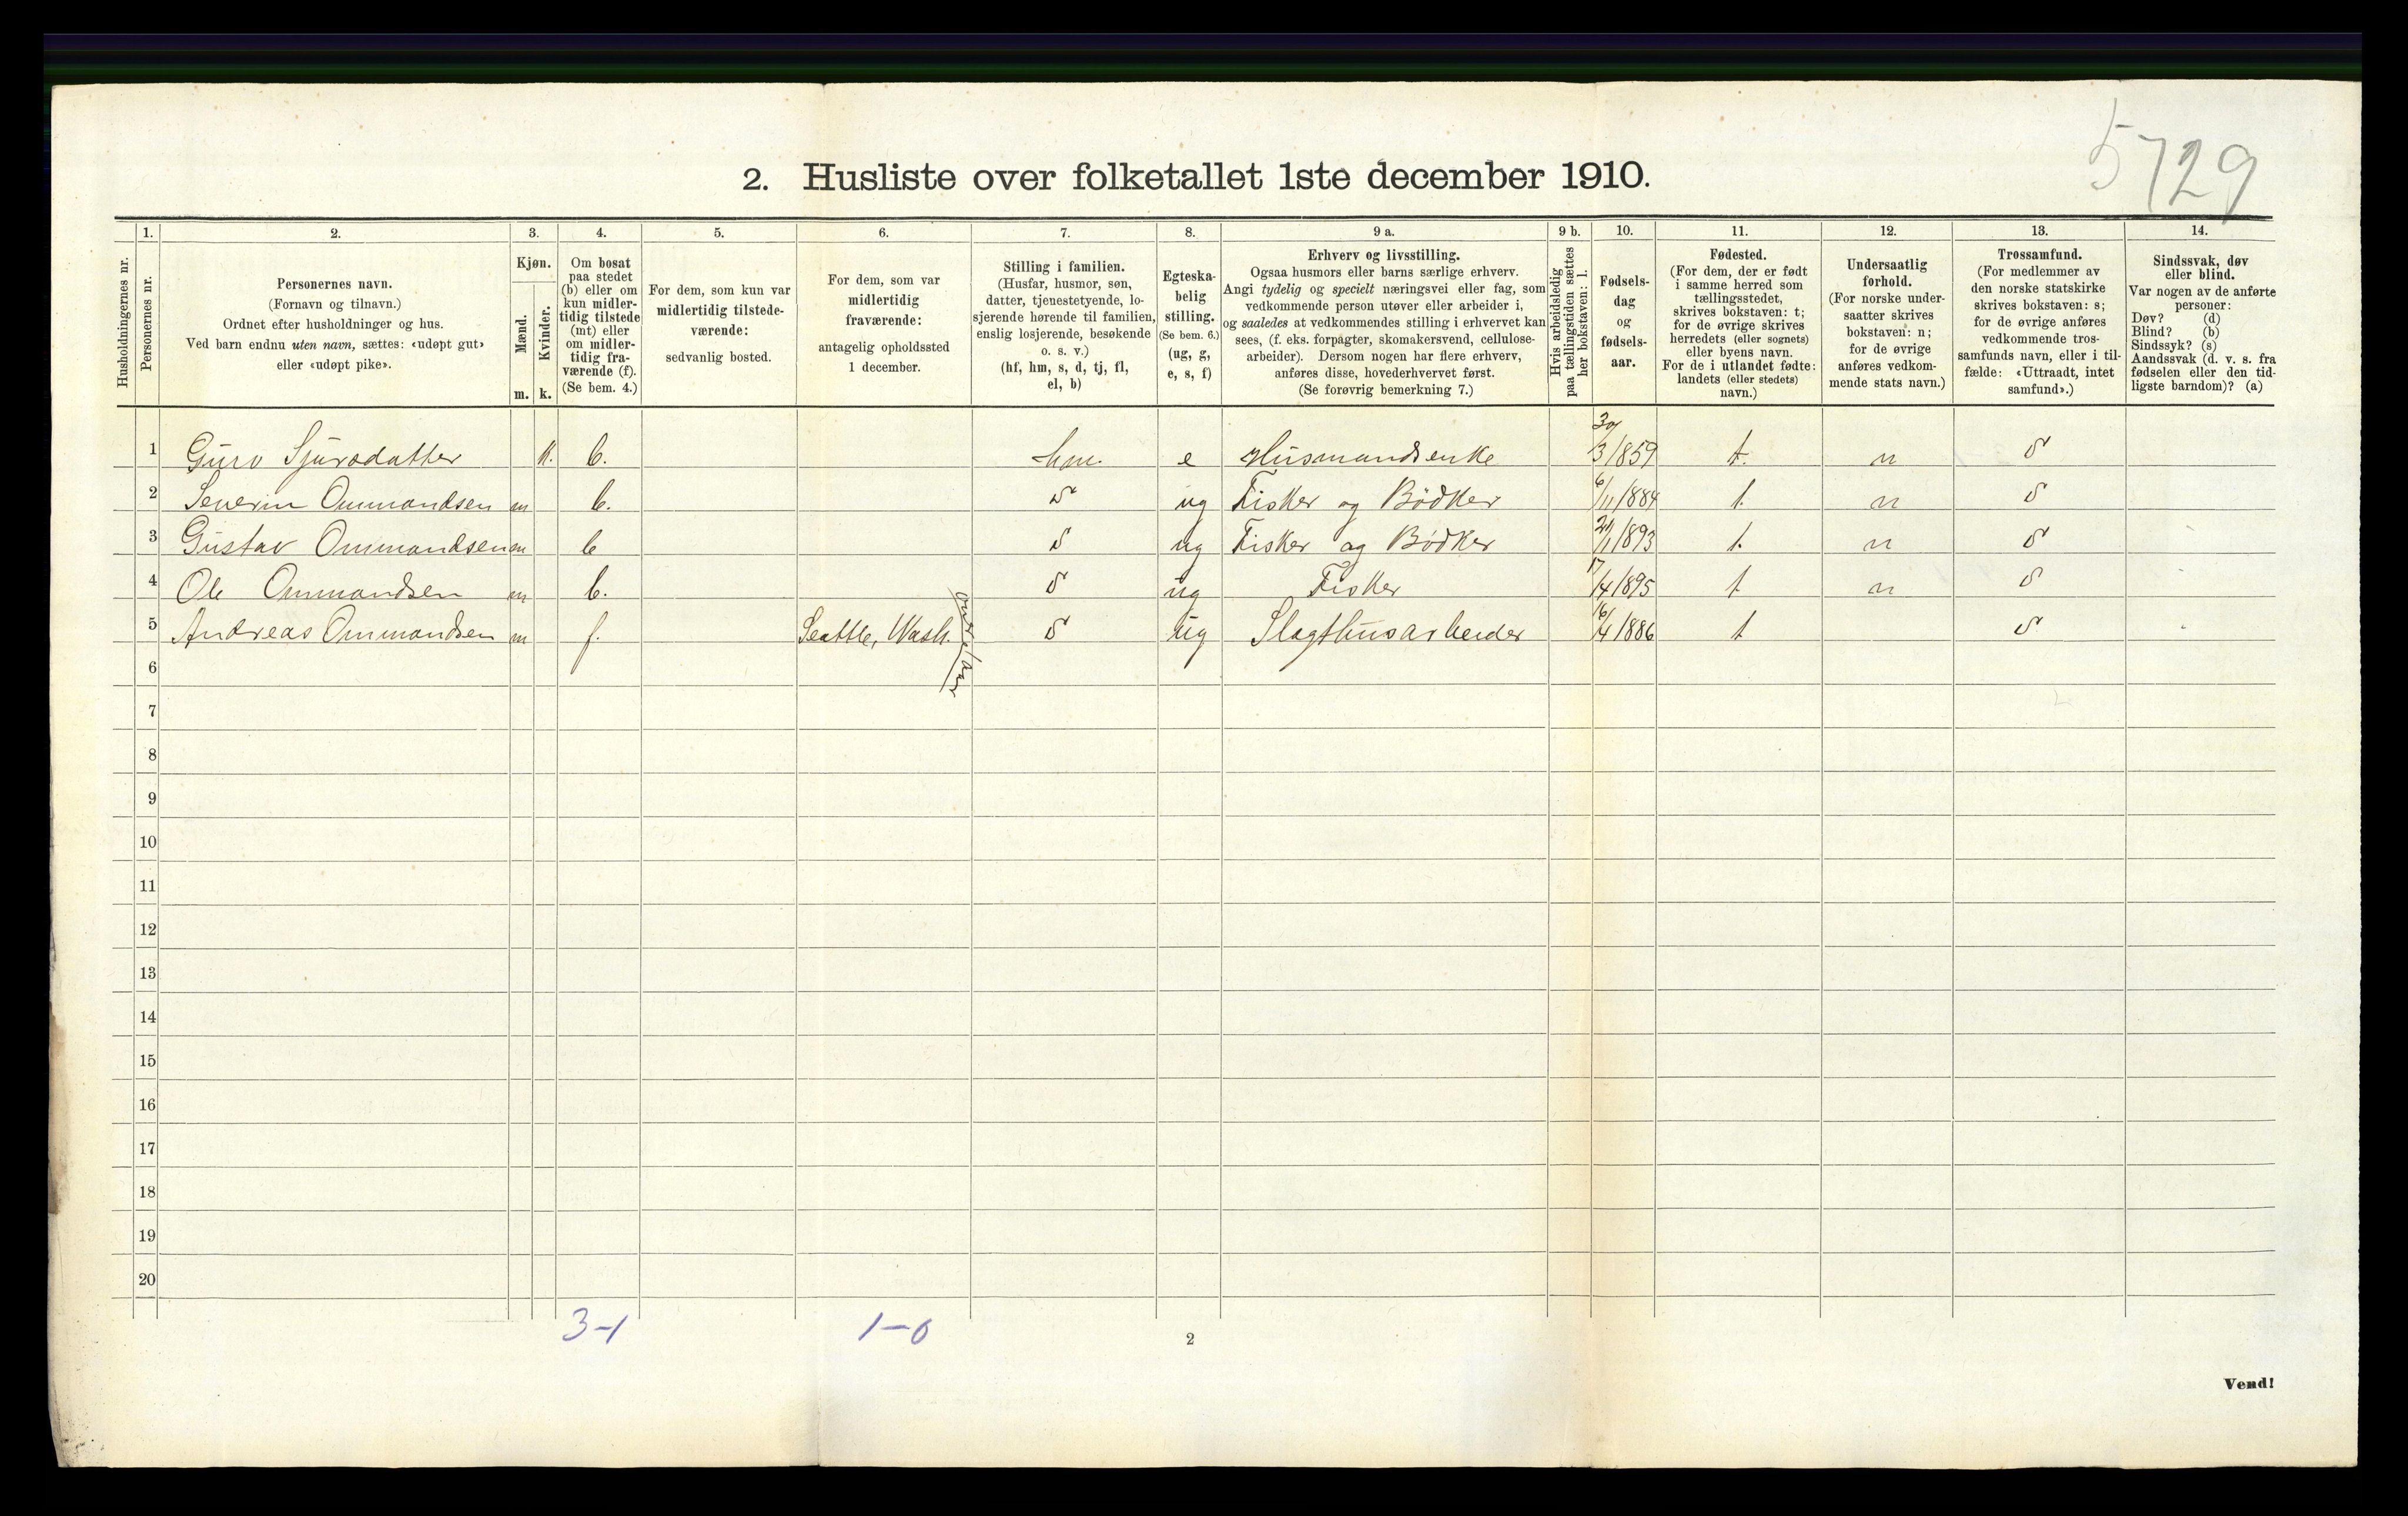 5729
2. Husliste over folketallet 1ste december 1910.
Husholdningernes nr.
1.
Personernes nr.
2.
Personernes navn.
(Fornavn og tilnavn.)
Ordnet efter husholdninger og hus.
Ved barn endnu uten navn, sættes: «udøpt gut»
eller «udøpt pike».
3.
Kjøn.
Mænd.
Kvinder.
m. k.
4.
Om bosat
paa stedet
(b) eller om
kun midler-
tidig tilstede
(mt) eller
om midler-
tidig fra-
værende (f).
(Se bem. 4.)
5.
For dem, som kun var
midlertidig tilstede-
værende:
sedvanlig bosted.
6.
For dem, som var
midlertidig
fraværende:
antagelig opholdssted
1 december.
7.
Stilling i familien.
(Husfar, husmor, søn,
datter, tjenestetyende, lo-
sjerende hørende til familien,
enslig losjerende, besøkende
o. s. v.)
(hf, hm, s, d, tj, fl,
el, b)
8.
Egteska-
belig
stilling.
(Se bem. 6.)
(ug, g,
e, s, f)
9 a.
Erhverv og livsstilling.
Ogsaa husmors eller barns særlige erhverv.
Angi tydelig og specielt næringsvei eller fag, som
vedkommende person utøver eller arbeider i,
og saaledes at vedkommendes stilling i erhvervet kan
sees, (f. eks. forpagter, skomakersvend, cellulose-
arbeider). Dersom nogen har flere erhverv,
anføres disse, hovederhvervet først.
(Se forøvrig bemerkning 7.)
9 b.
Hvis arbeidsledig
paa tællingstiden sættes
her bokstaven: l.
10.
Fødsels-
dag
og
fødsels-
aar.
11.
Fødested.
(For dem, der er født
i samme herred som
tællingsstedet,
skrives bokstaven: t;
for de øvrige skrives
herredets (eller sognets)
eller byens navn.
For de i utlandet fødte:
landets (eller stedets)
navn.)
12.
Undersaatlig
forhold.
(For norske under-
saatter skrives
bokstaven: n;
for de øvrige
anføres vedkom-
mende stats navn.)
13.
Trossamfund.
(For medlemmer av
den norske statskirke
skrives bokstaven: s;
for de øvrige anføres
vedkommende tros-
samfunds navn, eller i til-
fælde: «Uttraadt, intet
samfund».)
14.
Sindssvak, døv
eller blind.
Var nogen av de anførte
personer:
Døv? (d)
Blind? (b)
Sindssyk? (s)
Aandssvak (d. v. s. fra
fødselen eller den tid-
ligste barndom)? (a)
1 Guro Sjursdatter k. b. hm. e Husmandsenke 30/3 1859 t. n s
2 Severin Ommandsen m b. s ug Fisker og Bödker 6/11 1884 t. n s
3 Gustav Ommandsen m b s ug Fisker og Bödker 1893 t. n s
4 Ole Ommandsen m b. s ug Fisker 17/4 1895 t n s
5 Andreas Ommandsen m f. Seattle, Wash. s ug Slagthusarbeider 16/4 1886 t s
6
7
8
9
10
11
12
13
14
15
16
17
18
19
20
3-1 1-0
2
Vend!